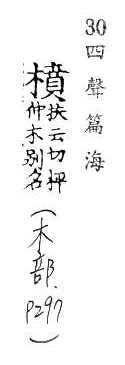 30四聲篇海
橨扶云切枰
仲木別名
(木部.P297)